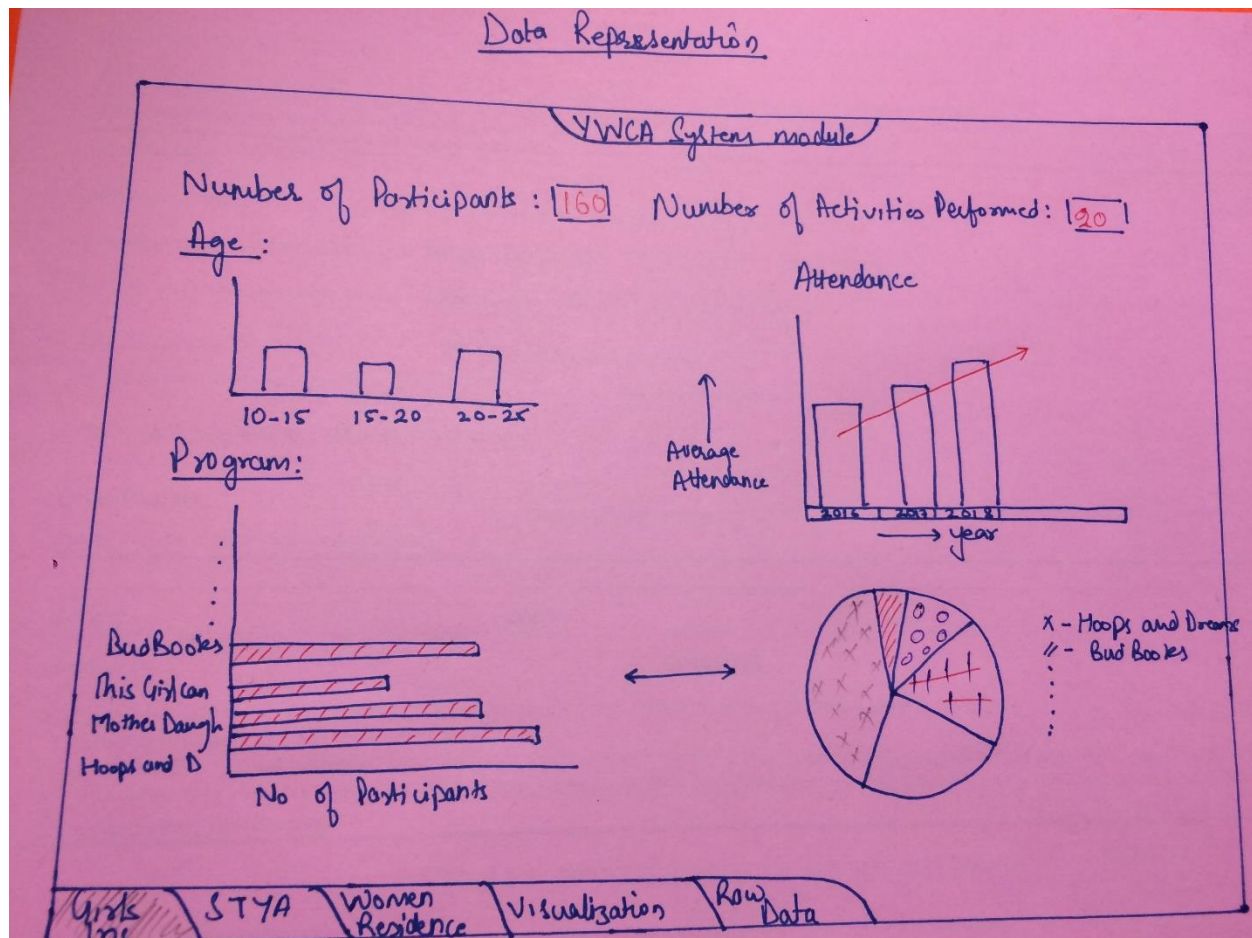 Data Representation
YWCA System module
Number of Participants : 160
Number of Activities Performed: 20
Age :
10-15 15-20 20-25
Attendance
Average
Attendance
2016 2017 2018
→ year
Program:
Bud Books
This Girl can
Mother Daugh
Hoops and D
No of Participants
x - Hoops and Dreams
// - Bud Books
Girls
Inc
STYA
Women
Residence
Visualization
Raw
Data